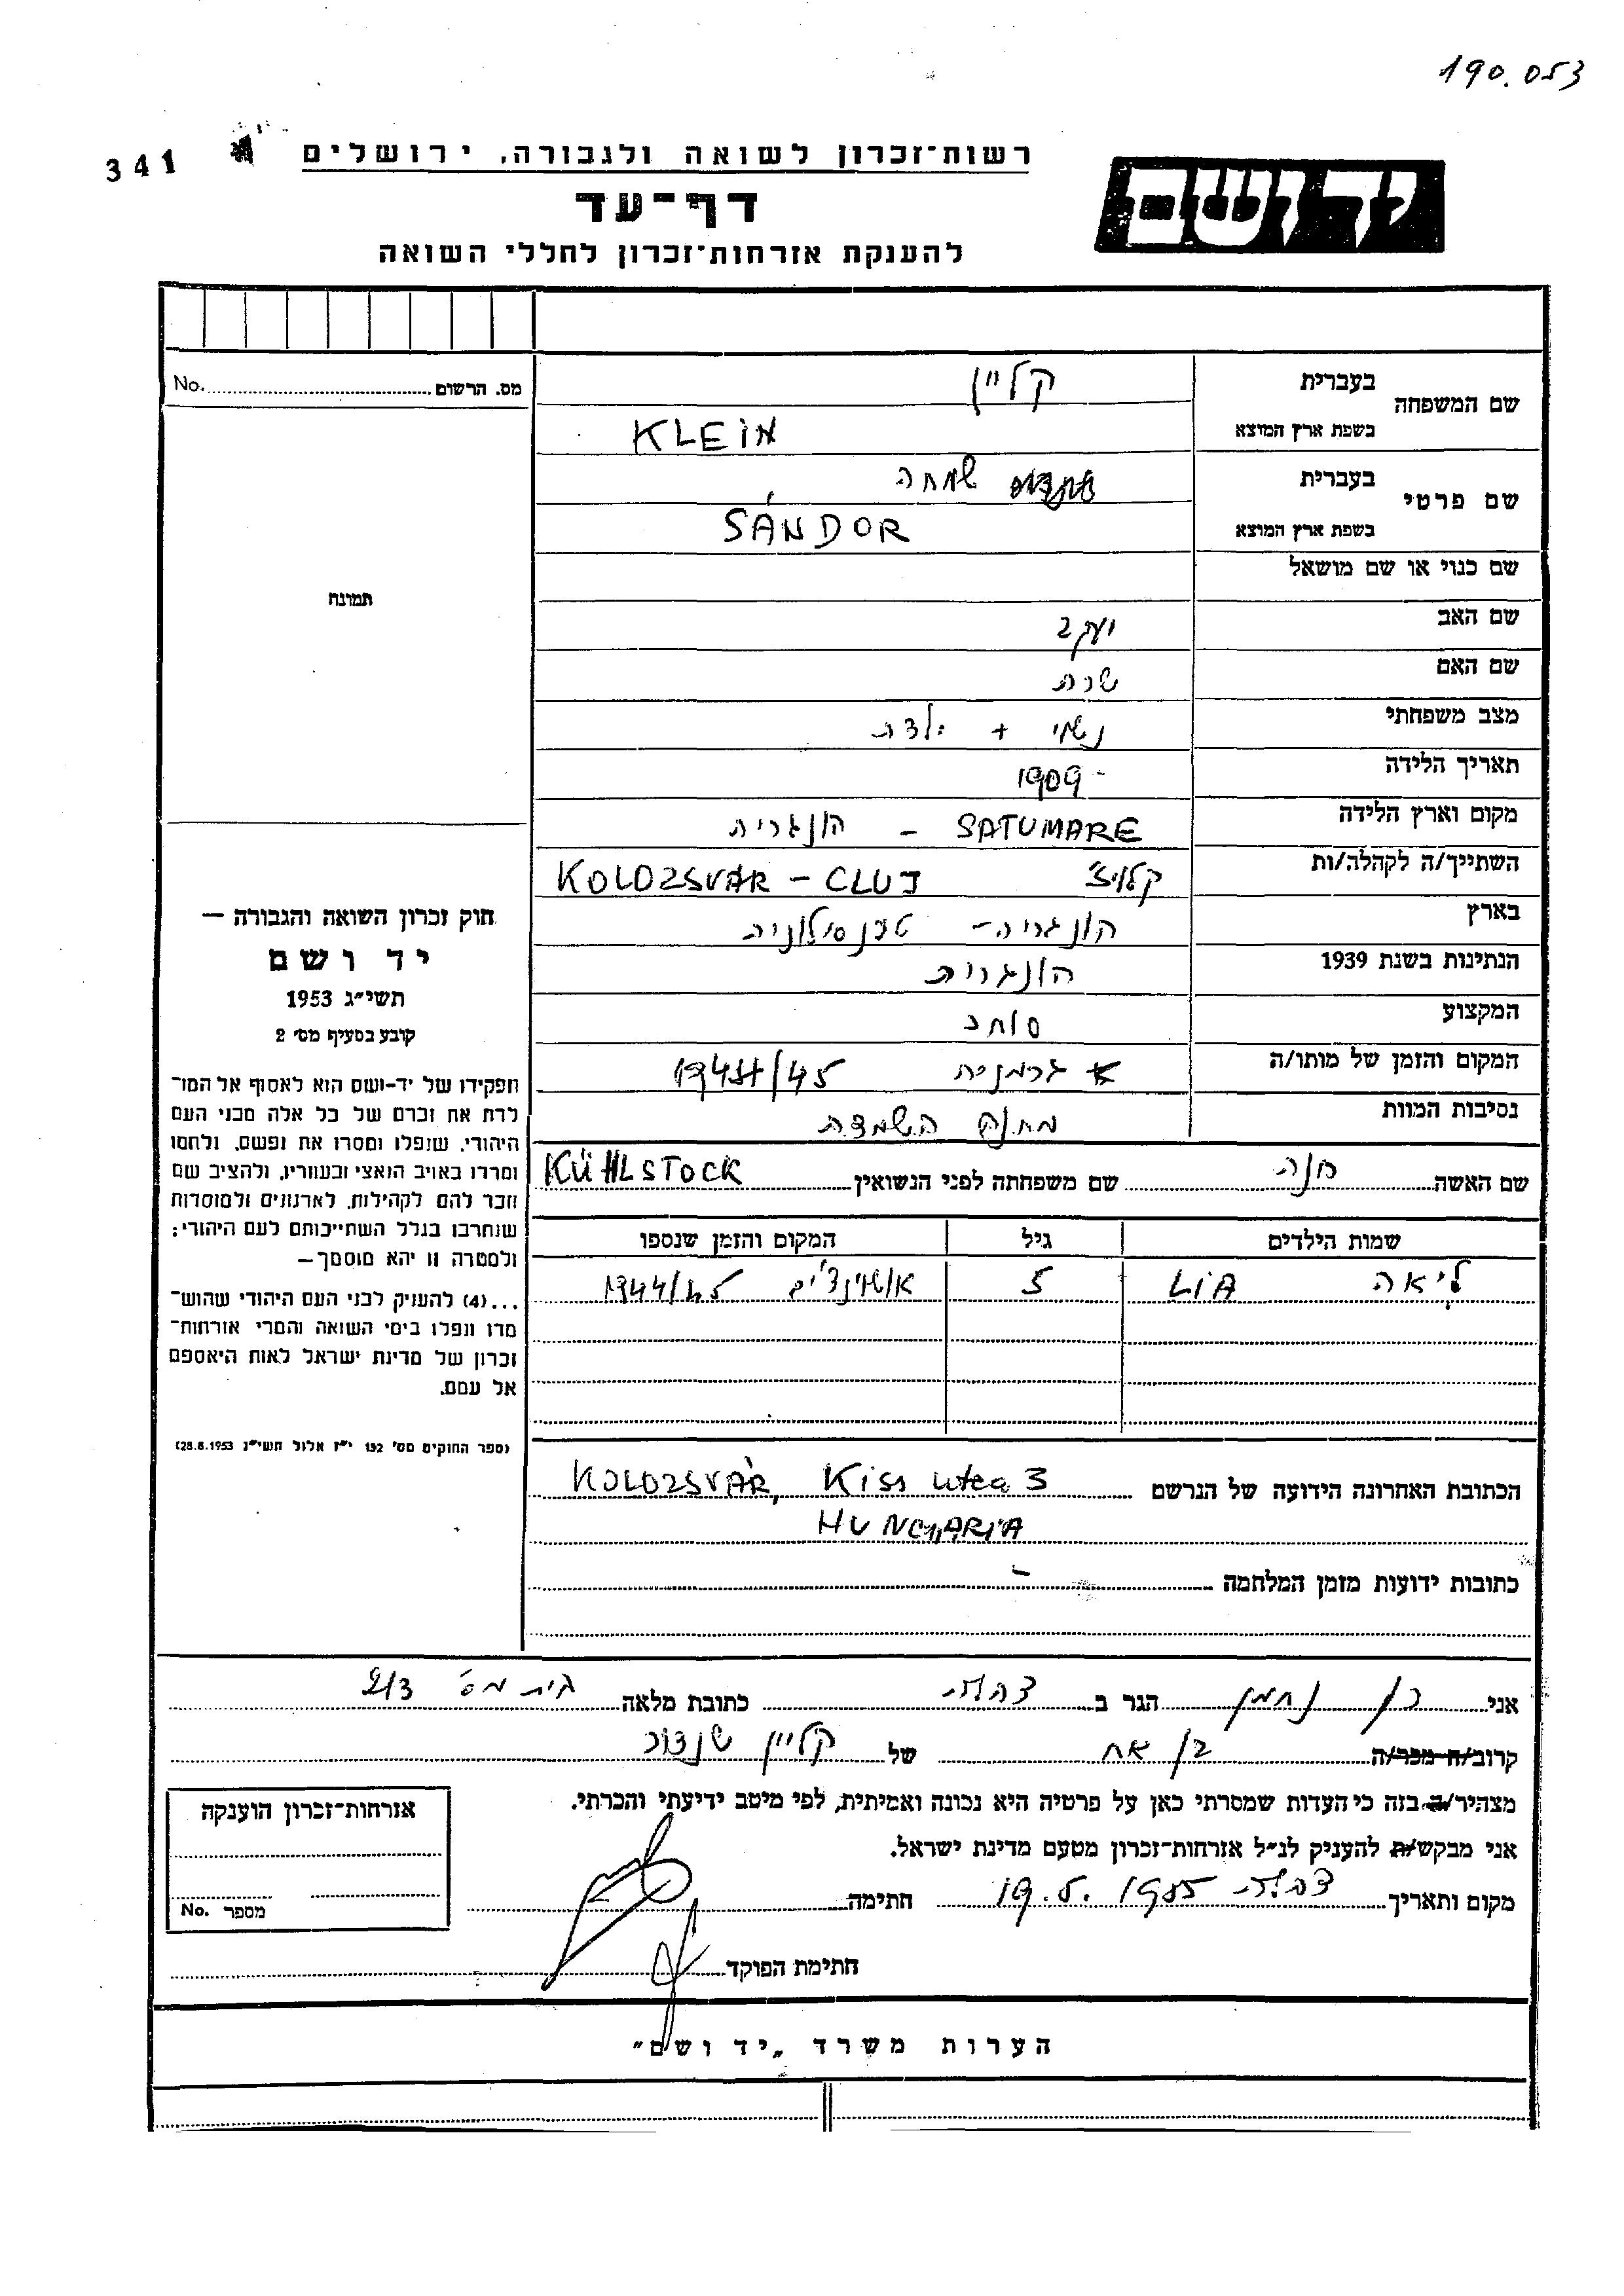 190.053
341
רשות־זכרון לשואה ולגבורה, ירושלים
דף־עד
להענקת אזרחות־זכרון לחללי השואה
יד ושם
מס. הרשום No.
שם המשפחה
בעברית קליין
בשפת ארץ המוצא KLEIN
שם פרטי
בעברית שמחה
בשפת ארץ המוצא SÁNDOR
שם כנוי או שם מושאל
שם האב יעקב
שם האם שרה
מצב משפחתי נשוי + ילדה
תאריך הלידה 1909
מקום וארץ הלידה SATUMARE – הונגריה
השתייך/ה לקהלה/ות קלוז' KOLOZSVÁR – CLUJ
בארץ הונגריה – טרנסילוניה
הנתינות בשנת 1939 הונגרית
המקצוע סוחר
המקום והזמן של מותו/ה גרמניה 1944/45
נסיבות המוות מחנה השמדה
שם האשה חנה שם משפחתה לפני הנשואין KÜHLSTOCK
שמות הילדים גיל המקום והזמן שנספו
ליאה LIA 5 אושוינצ'ים 1944/45
הכתובת האחרונה הידועה של הנרשם KOLOZSVÁR, Kiss utca 3
HUNGARIA
כתובות ידועות מזמן המלחמה –
תמונה
חוק זכרון השואה והגבורה —
יד ושם
תשי״ג 1953
קובע בסעיף מס׳ 2
תפקידו של יד-ושם הוא לאסוף אל המו־
לדת את זכרם של כל אלה מבני העם
היהודי, שנפלו ומסרו את נפשם, נלחמו
ומרדו באויב הנאצי ובעוזריו, ולהציב שם
וזכר להם לקהילות, לארגונים ולמוסדות
שנחרבו בגלל השתייכותם לעם היהודי;
ולמטרה זו יהא מוסמך—
...(4) להעניק לבני העם היהודי שהוש־
מדו ונפלו בימי השואה והמרי אזרחות־
זכרון של מדינת ישראל לאות היאספם
אל עמם.
(ספר החוקים מס׳ 132 י״ז אלול תשי״ג 28.8.1953)
אני בן נחמן הגר ב צהלה כתובת מלאה בית מס' 213
קרוב/ה מכר/ה בן אח של קליין שנדור
מצהיר/ה בזה כי העדות שמסרתי כאן על פרטיה היא נכונה ואמיתית, לפי מיטב ידיעתי והכרתי.
אני מבקש/ת להעניק לנ״ל אזרחות־זכרון מטעם מדינת ישראל.
מקום ותאריך צהלה 19.5.1955 חתימה
חתימת הפוקד
אזרחות־זכרון הוענקה
מספר No.
הערות משרד „יד ושם״